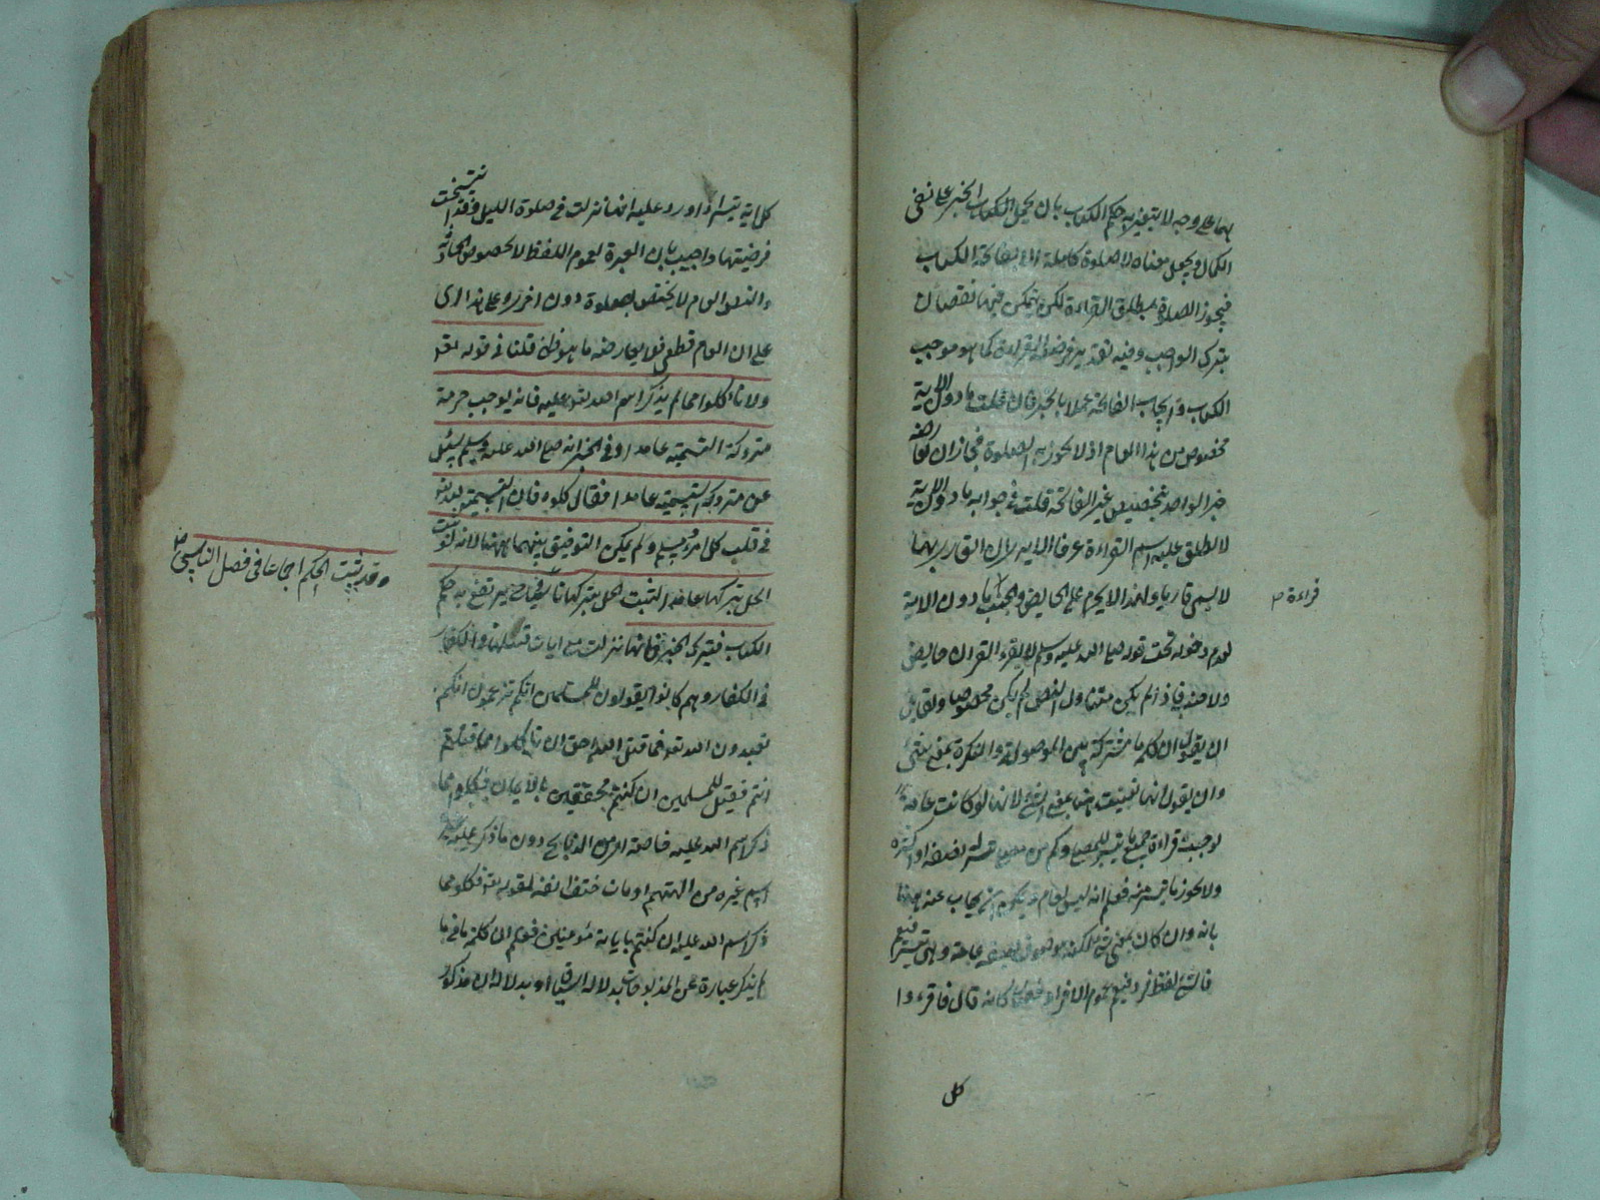 بهما على وجه لا يتغير به حكم الكتاب بان يحمل الخبر على نفى
الكمال ويجعل معناه لا صلوة كاملة الا بفاتحة الكتاب
فيجوز الصلوة بمطلق القراءة لكن يتمكن فيها نقصان
بترك الواجب وفيه تقدير فرضية القراءة كما هو موجب
الكتاب وايجاب الفاتحة عملا بالخبر فان قلت ما دون الاية
مخصوص من هذا العام اذ لا يجوز به الصلوة فجاز ان يعارضه
خبر الواحد بتخصيص غير الفاتحة قلت فى جوابه ما دون الاية
لا يطلق عليه اسم القراءة عرفا
لا يسمى قاريا ولهذا لا يحرم على الحايض والجنب ما دون الاية
قراءة
لعدم دخوله تحت قوله صلى الله عليه وسلم لا يقرء القران حايض
ولا جنب فاذا لم يكن متناول النص لم يكن مخصوصا ولقايل
ان يقول ان كلمة ما مشتركة بين الموصولة والنكرة بمعنى شئ
وان يقول انها تعينت هنا بمعنى الشئ لانها لو كانت عامة
لوجبت قراءة جميع ما تيسر للمصلى وكم من مصل تيسر له نصفه او اكثره
ولا يجوز ما تيسر منه فعلم انه ليس بعام يجاب عنه
بانه وان كان بمعنى شئ لكنه موصوف بصفة عامة وهى تيسر
فالشئ لفظ فرد فيعم عموم الافراد كانه قال فاقرءوا
كل
كل اية تيسر اذا ورد عليه انها نزلت فى صلوة الليل وقد انتسخت
فرضيتها واجيب بان العبرة لعموم اللفظ لا لخصوص الحادثة
والنص العام لا يختص بصلوة دون اخرى وعلى هذا اى
على ان العام قطعى فلا يعارضه ما هو ظنى قلنا فى قوله تعالى
ولا تاكلوا مما لم يذكر اسم الله عليه فانه يوجب حرمة
متروك التسمية عامدا وفى الخبر انه صلى الله عليه وسلم سئل
عن متروك التسمية عامدا فقال كلوه فان تسمية الله تعالى
فى قلب كل امرء مسلم ولم يمكن التوفيق بينهما ههنا لانه لو ثبت
الحل بتركها عامدا لثبت الحل بتركها ناسيا فحينئذ يرتفع به حكم
وقد ثبت الحكم اجماعا فى فصل الناسى
الكتاب فيترك الخبر فانها نزلت مع ايات
فى الكفار وهم كانوا يقولون للمسلمين انكم تزعمون انكم
تعبدون الله تعالى فما قتل الله احق ان تاكلوا مما قتلتم
انتم فقيل للمسلمين ان كنتم محققين بالايمان فكلوا مما
ذكر اسم الله عليه خاصة من الذبايح دون ما ذكر عليه
اسم غيره من الهتهم او مات حتف انفه لقوله تعالى فكلوا مما
ذكر اسم الله عليه ان كنتم باياته مؤمنين فعلم ان كلمة ما فى ما
لم يذكر عبارة عن المذبوحات بدلالة السياق او بدلالة ان مذكور